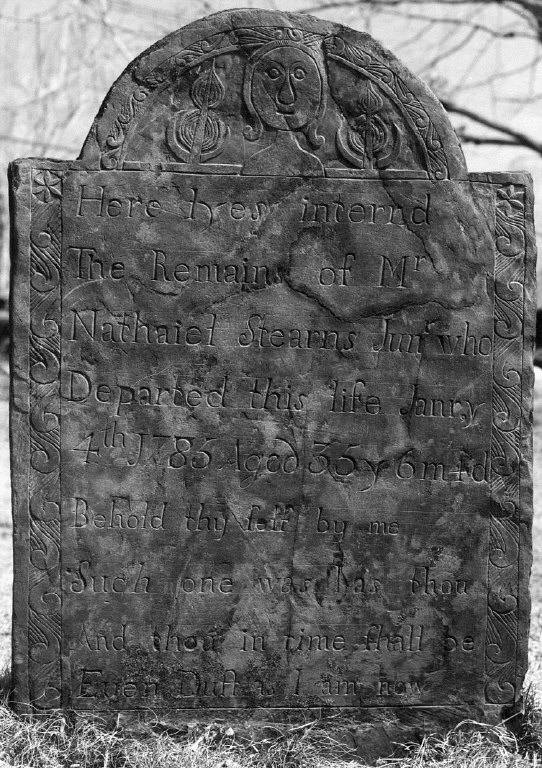 Here lyes internd
The Remains of Mr
Nathaiel Stearns Junr who
Departed this life Janry
4th 1785 Aged 35 y 6 m 4 d
Behold thy ſelf by me
Such one was I as thou
And thou in time ſhall be
Even Duſt as I am now